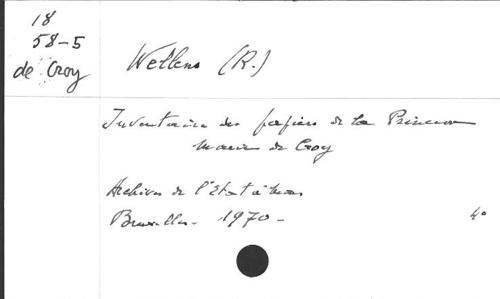 18
58-5
de Croy
Wellens (R.)
Inventaire des papiers de la Princesse
Marie de Croy
Archives de l'Etat à Mons
Bruxelles - 1970 -
4°